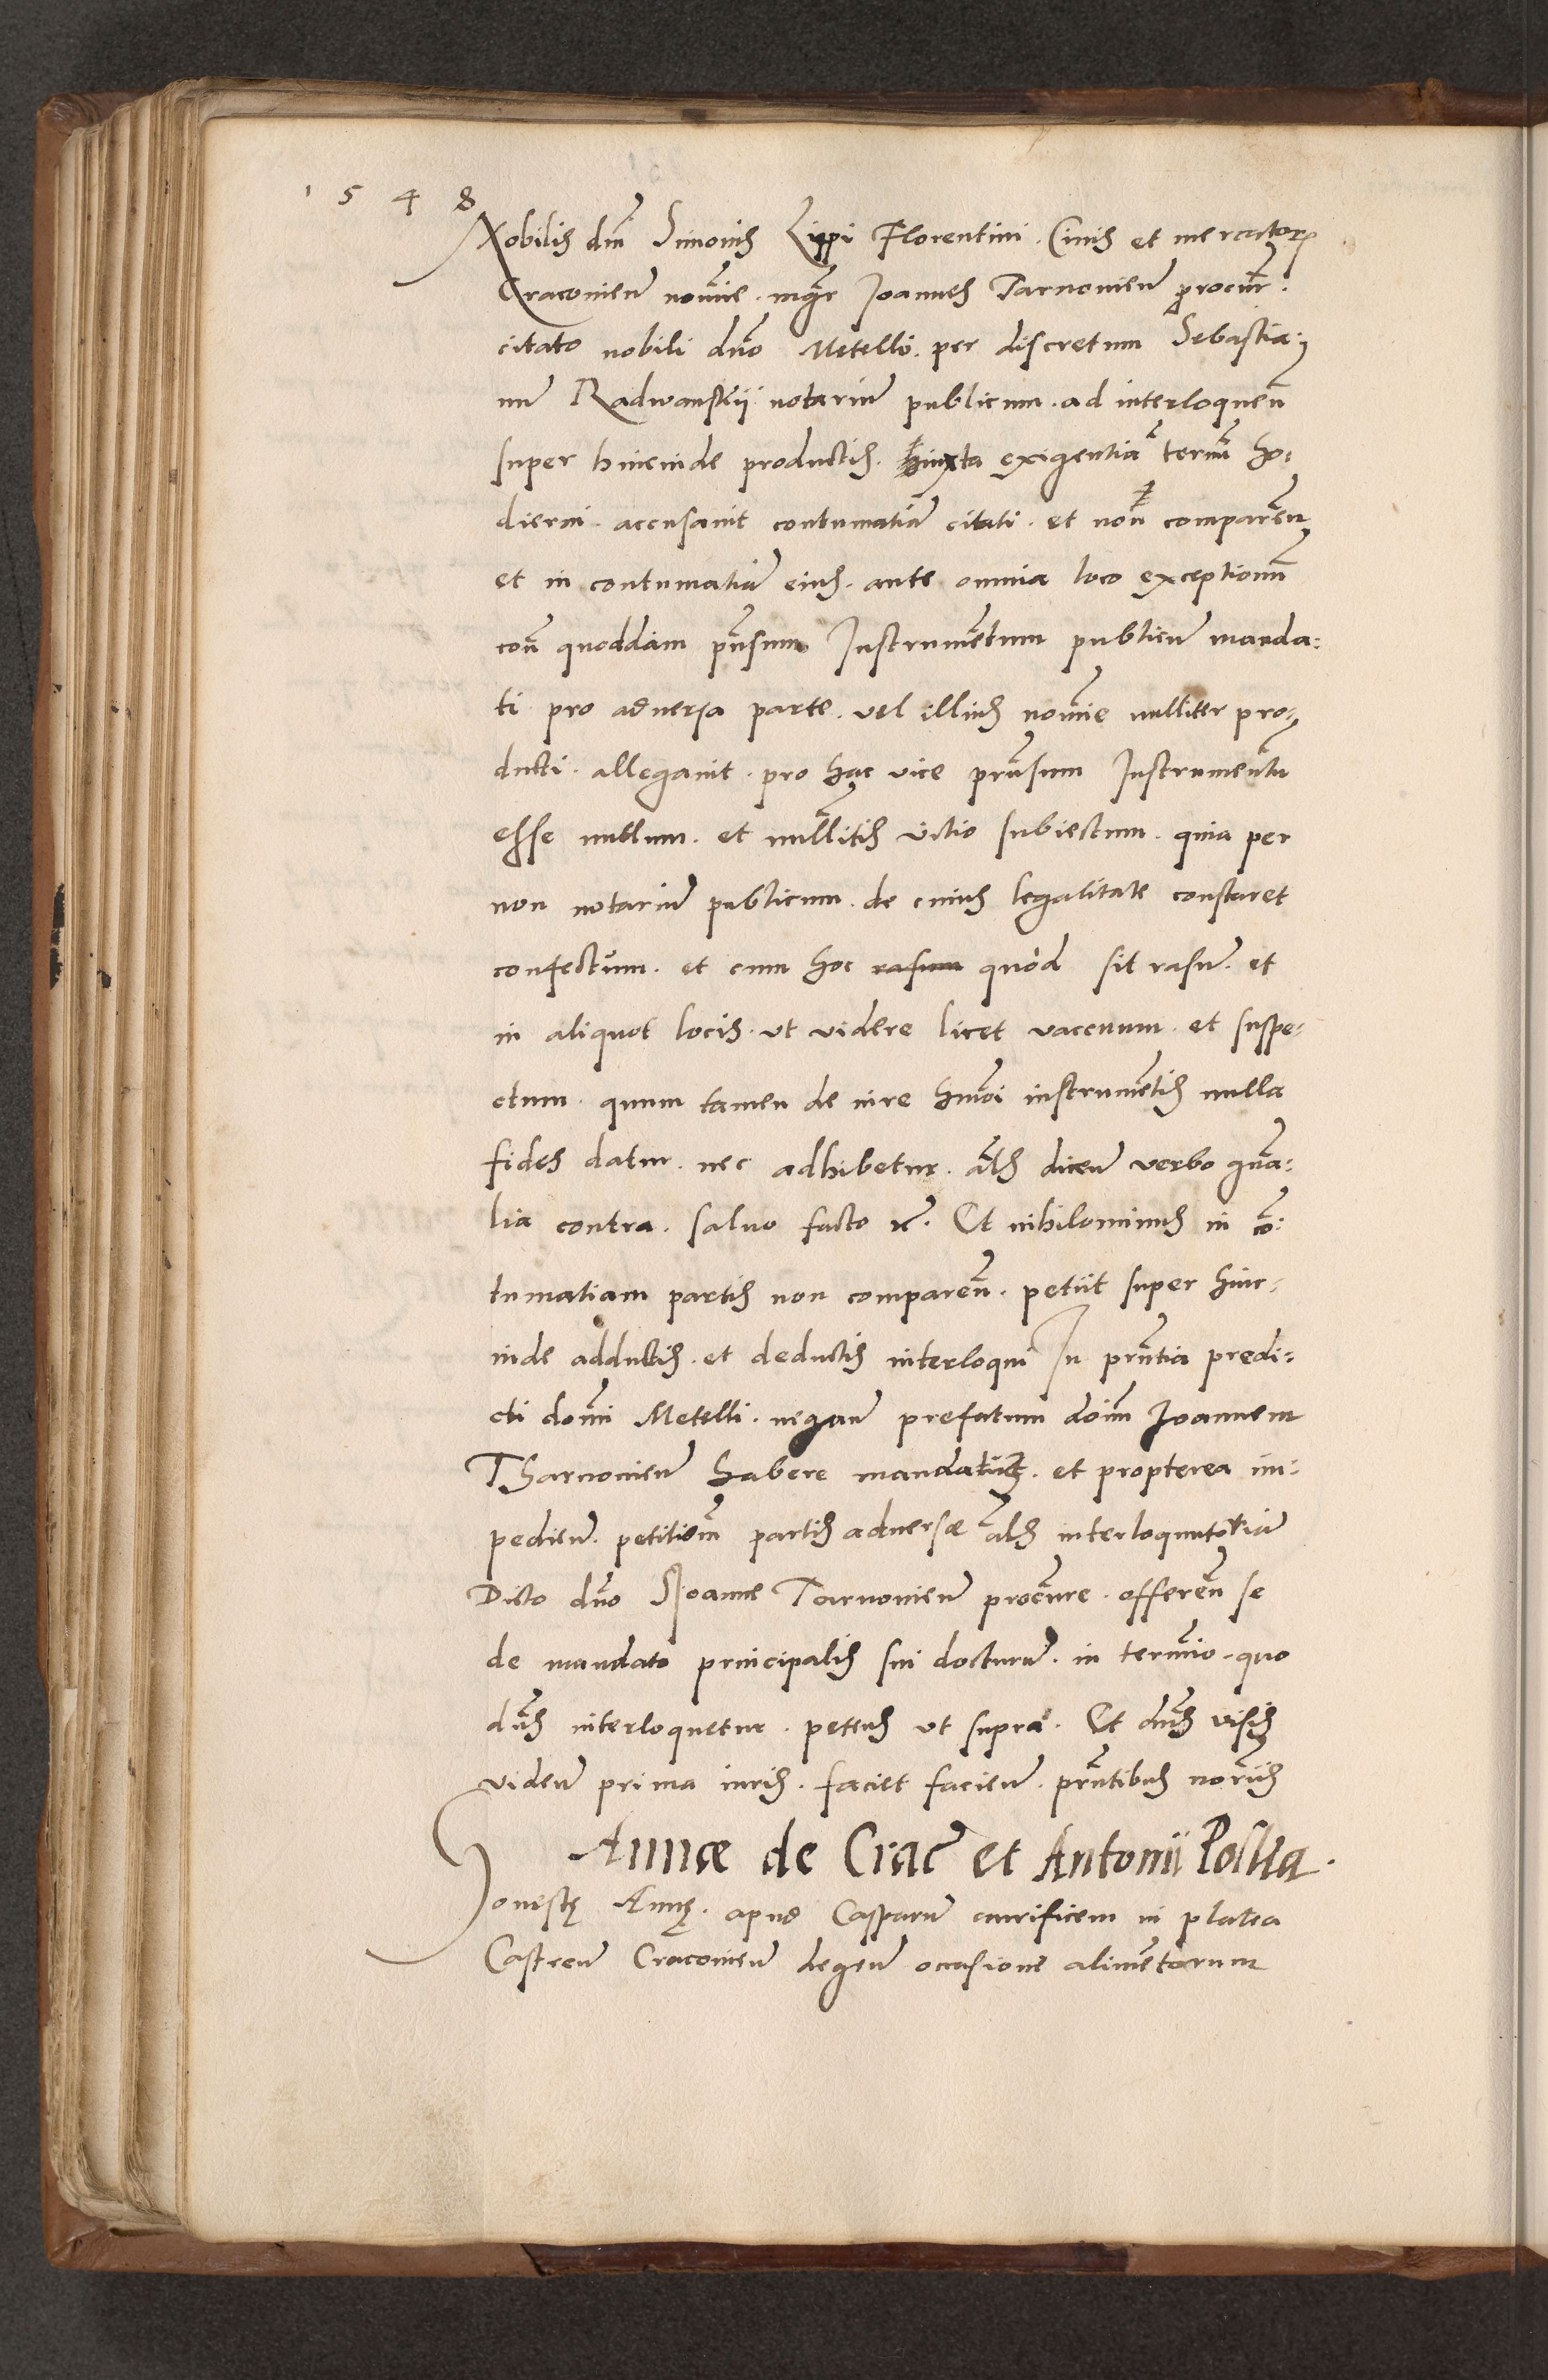 1 5 4 8
Nobilis dm̃i Simonis Lippi Florentini. Ciuis et mercatoris
Cracouieñ nomine. mg̃r Joannes Tarnouieñ procur̃.
citato nobili dño Metello. per discretum Sebastia:
nũ Radwanskij notariũ publicum. ad interloqueñ
super hincinde productis. iuxta exigentiã termĩ ho:
dierni. accusauit contumatiã citati. et non comparẽn
et in contumatiã eius. ante omnia loco exceptionũ
coñ quoddam pr̃nsum Instrumẽtum publicũ manda:
ti pro aduersa parte. vel illius nomĩe nulliter pro:
ducti. allegauit. pro hac vice prñsum Instrumentũ
esse nullum. et nullitis vitio subiectum. quia per
non notariũ publicum. de cuius legalitate constaret
confectum. et cum hoc rasum quod sit rasũ. et
in aliquot locis. ut videre licet vacuum. et suspe:
ctum. quum tamen de iure hm̃oi instrumẽtis nulla
fides datur. nec adhibetur. al̃s diceñ verbo gña:
lia contra. saluo facto rc̃. Et nihilominus in cõ:
tumatiam partis non compareñ. petiit super hinc:
inde adductis. et deductis interloqui In prñtia predi:
cti domĩ Metelli. negañ prefatum doim̃ Joannem
Tharnouieñ habere mandatũ. et propterea im:
pedieñ. petitionẽ partis aduersæ al̃s interloquutoriã
Dicto dño Joanne Tarnouieñ procure. offereñ se
de mandato principalis sui docturũ. in termĩo. quo
dñs interloquetur. petens ut supra. Et dñs visis
videñ prima iuris. faciet facieñ. prñtibus noriis
Annæ de Crac̃ et Antonii Polsia.
Honestę Annę. apud Casparũ aurificem in platea
Castreñ Cracouieñ degeñ occasione alimẽtorum